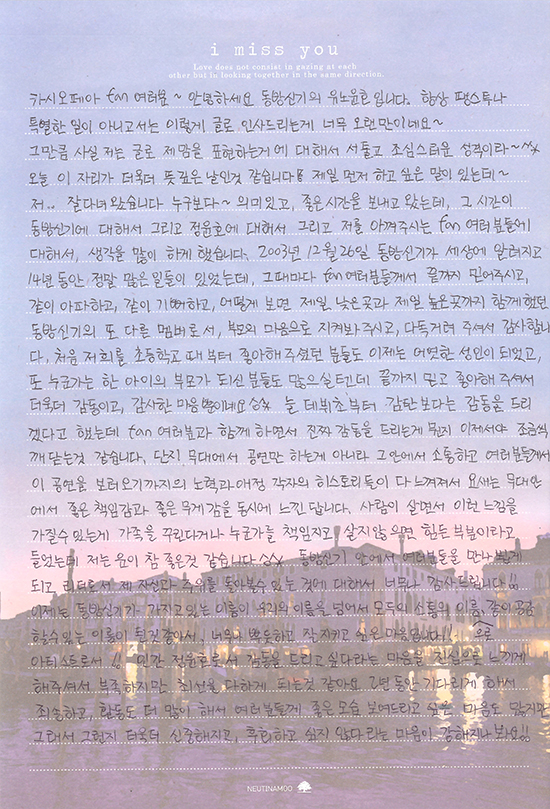 i miss you
Love does not consist in gazing at each
other but in looking together in the same direction.
카시오페아 fan 여러분 ~ 안녕하세요 동방신기의 유노윤호입니다. 항상 팬스투나
특별한 일이 아니고서는 이렇게 글로 인사드리는게 너무 오랜만이네요~
그만큼 사실 저는 글로 제맘을 표현하는거에 대해서 서툴고 조심스러운 성격이라~^^
오늘 이 자리가 더욱더 뜻깊은 날인것 같습니다! 제일 먼저 하고 싶은 말이 있는데~
저.. 잘다녀왔습니다 누구보다~ 의미있고, 좋은시간을 보내고 왔는데, 그 시간이
동방신기에 대해서 그리고 정윤호에 대해서 그리고 저를 아껴주시는 fan 여러분들에
대해서, 생각을 많이 하게 했습니다. 2003년 12월 26일 동방신기가 세상에 알려지고
14년 동안, 정말 많은 일들이 있었는데, 그때마다 fan여러분들께서 끝까지 믿어주시고,
같이 아파하고, 같이 기뻐하고, 어떻게 보면 제일 낮은곳과 제일 높은곳까지 함께했던
동방신기의 또 다른 멤버로서, 부모의 마음으로 지켜봐주시고, 다독거려 주셔서 감사합니
다. 처음 저희를 초등학교 때부터 좋아해주셨던 분들도 이제는 어엿한 성인이 되었고,
또 누군가는 한 아이의 부모가 되신 분들도 많으실텐데 끝까지 믿고 좋아해 주셔서
더욱더 감동이고, 감사한 마음뿐이네요 늘 데뷔초부터 감탄보다는 감동을 드리
겠다고 했는데 fan 여러분과 함께 하면서 진짜 감동을 드리는게 뭔지 이제서야 조금씩
깨닫는것 같습니다. 단지, 무대에서 공연만 하는게 아니라 그안에서 소통하고 여러분들께서
이 공연을 보러오기까지의 노력과 애정 각자의 히스토리들이 다 느껴져서 요새는 무대안
에서 좋은 책임감과 좋은 무게감을 동시에 느낀답니다. 사람이 살면서 이런 느낌을
가질수 있는게 가족을 꾸린다거나 누군가를 책임지고 살지않으면 힘든 부분이라고
들었는데 저는 운이 참 좋은것 같습니다 동방신기 안에서 여러분들을 만나 뵙게
되고 리더로서 제 자신과 주위를 돌아볼수 있는 것에 대해서 너무나 감사드립니다!!
이제는 동방신기가 가지고 있는 이름이 우리의 이름을 넘어서 모두의 이름, 같이 공유
할수있는 이름이 된것같아서, 너무나 뿌듯하고 지키고 싶은 마음입니다!! 으로
아티스트로서!! 인간 정윤호로서 감동을 드리고싶다라는 마음을 진심으로 느끼게
해주셔서 부족하지만 최선을 다하게 되는것 같아요 2년 동안 기다리게 해서
죄송하고, 활동도 더 많이 해서 여러분들께 좋은 모습 보여드리고 싶은 마음도 많지만
그래서 그런지 더욱더 신중해지고, 후회하고 싶지 않다라는 마음이 강해지나봐요!!
NEUTINAMOO